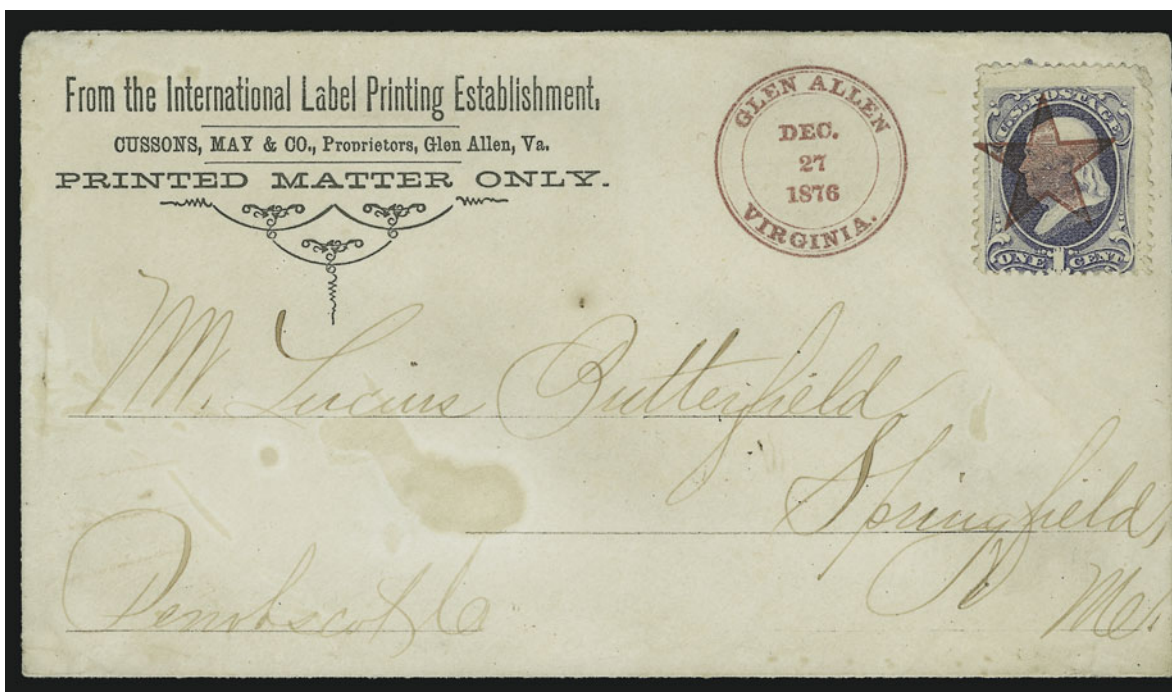 From the International Label Printing Establishment,
CUSSONS, MAY & CO., Proprietors, Glen Allen, Va.
PRINTED MATTER ONLY.
GLEN ALLEN
DEC.
27
1876
VIRGINIA.
U.S. POSTAGE
ONE 1 CENT
Mr. Lucius Butterfield,
Springfield,
Penobscot Co Me.